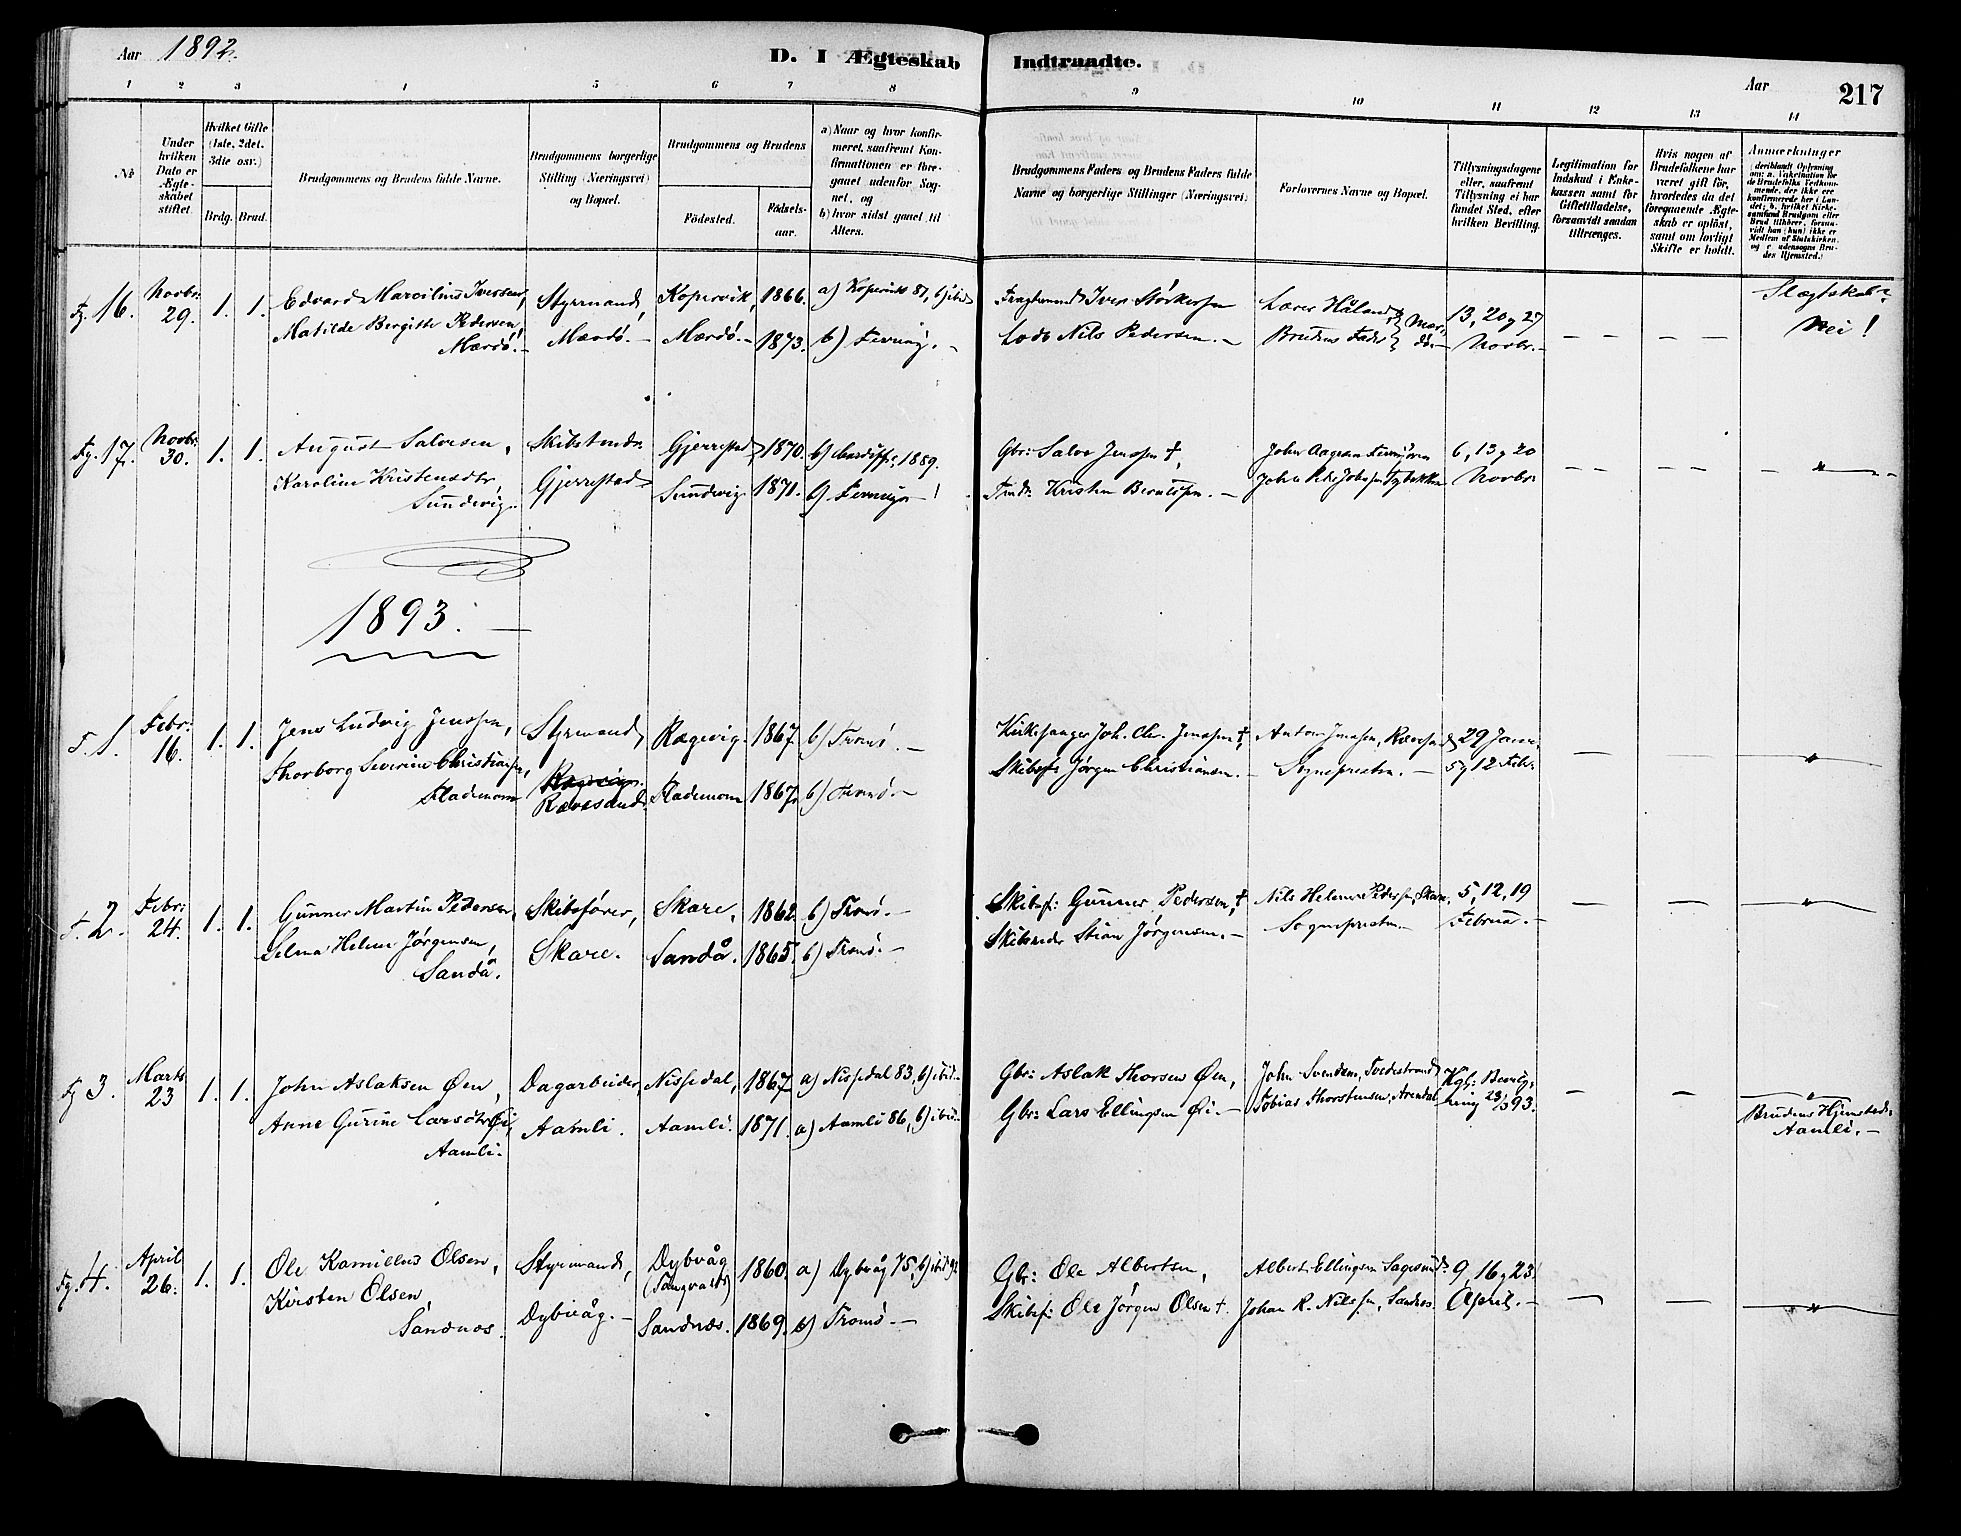 Aar 1892.
D. I Ægteskab Indtraadte.
Aar
217
1 2 3 4 5 6 7 8 9 10 11 12 13 14
No
Under hvilken Dato er Ægteskabet stiftet.
Hvilket Gifte (1ste, 2det, 3die osv.)
Brdg. Brud.
Brudgommens og Brudens fulde Navne.
Brudgommens borgerlige Stilling (Næringsvei) og Bopæl.
Brudgommens og Brudens
Fødested.
Fødselsaar.
a) Naar og hvor konfirmeret, saafremt Konfirmationen er foregaaet udenfor Sognet, og
b) hvor sidst gaaet til Alters.
Brudgommens Faders og Brudens Faders fulde Navne og borgerlige Stillinger (Næringsvei)
Forlovernes Navne og Bopæl.
Tillysningsdagene eller, saafremt Tillysning ei har fundet Sted, efter hvilken Bevilling.
Legitimation for Indskud i Enkekassen samt for Giftetilladelse, forsaavidt saadan tiltrænges.
Hvis nogen af Brudefolkene har været gift før, hvorledes da det foregaaende Ægteskab er opløst, samt om lovligt Skifte er holdt.
Anmærkninger
Fg. 16. Novbr: 29. 1. 1. Edvard Marcilius Iversen, Styrmand, Kopervik, 1866. a) Kopervik 81, b) ibid
Matilde Bergitte Pedersen, Mærdø. Mærdø. Mærdø. 1873. b) Færvig.
Iver Størkersen
Lods Nils Pedersen.
Lærer Håland,
Brudens Fader
13, 20 og 27 Novbr.
Slægtskab? Nei!
Fg. 17. Novbr: 30. 1. 1. August Salvesen, Skibstmdr. Gjerrestad, 1870. b) Cardiff, 1889.
Karoline Kristensdtr, Sundvig. Gjerrestad Sundvig 1871.
Gbr: Salve Jensen †,
Kristen Berntsen.
6, 13 og 20 Novbr.
1893.
F. 1. Febr: 16. 1. 1. Jens Ludvig Jenssen, Styrmand, Rægevig. 1867. b) Tromø.
Thorborg Severine Christiansen, Flademoen Rævesand. Flademoen 1867. b) Tromø.
Kirkesanger Joh. Chr. Jenssen †,
Skibsf. Jørgen Christiansen.
Anton Jenssen, Rævesand
Sognepresten.
29 Janr. 5 og 12 Febr:
F. 2. Febr: 24. 1. 1. Gunner Martin Pedersen, Skibsfører, Skare, 1862. b) Tromø.
Selma Helene Jørgensen, Sandå. Skare. Sandå. 1865. b) Tromø.
Skibsf: Gunner Pedersen, †
Skibsreder Stian Jørgensen.
Nils Helmer Pedersen, Skare.
Sognepresten.
5, 12, 19 Februar.
Fg 3. Marts 23 1. 1. John Aslaksen Øen, Dagarbeider, Nissedal, 1867. a) Nissedal 83, b) ibid.
Anne Gurine Larsdtr Øi, Aamli. Aamli. Aamli. 1871. a) Aamli 86, b) ibid.
Gbr: Aslak Thorsen Øen,
Gbr: Lars Ellingsen Øi.
John Svendsen, Tvedestrand
Tobias Thorstensen, Arendal
Kgl: Bevilgning 23/3 93.
Brudens Hjemsted: Aamli.
Fg. 4. April 26. 1. 1. Ole Kamillus Olsen, Styrmand, Dybvåg 1860. a) Dybvåg 75, b) ibid 92
Kirsten Olsen, Sandnæs. Dybvåg. Sandnæs. 1869. b) Tromø.
Gbr: Ole Albertsen,
Skibsf: Ole Jørgen Olsen †.
Albert Ellingsen Sagesund.
Johan R. Nilssen, Sandnæs.
9, 16 og 23 April.